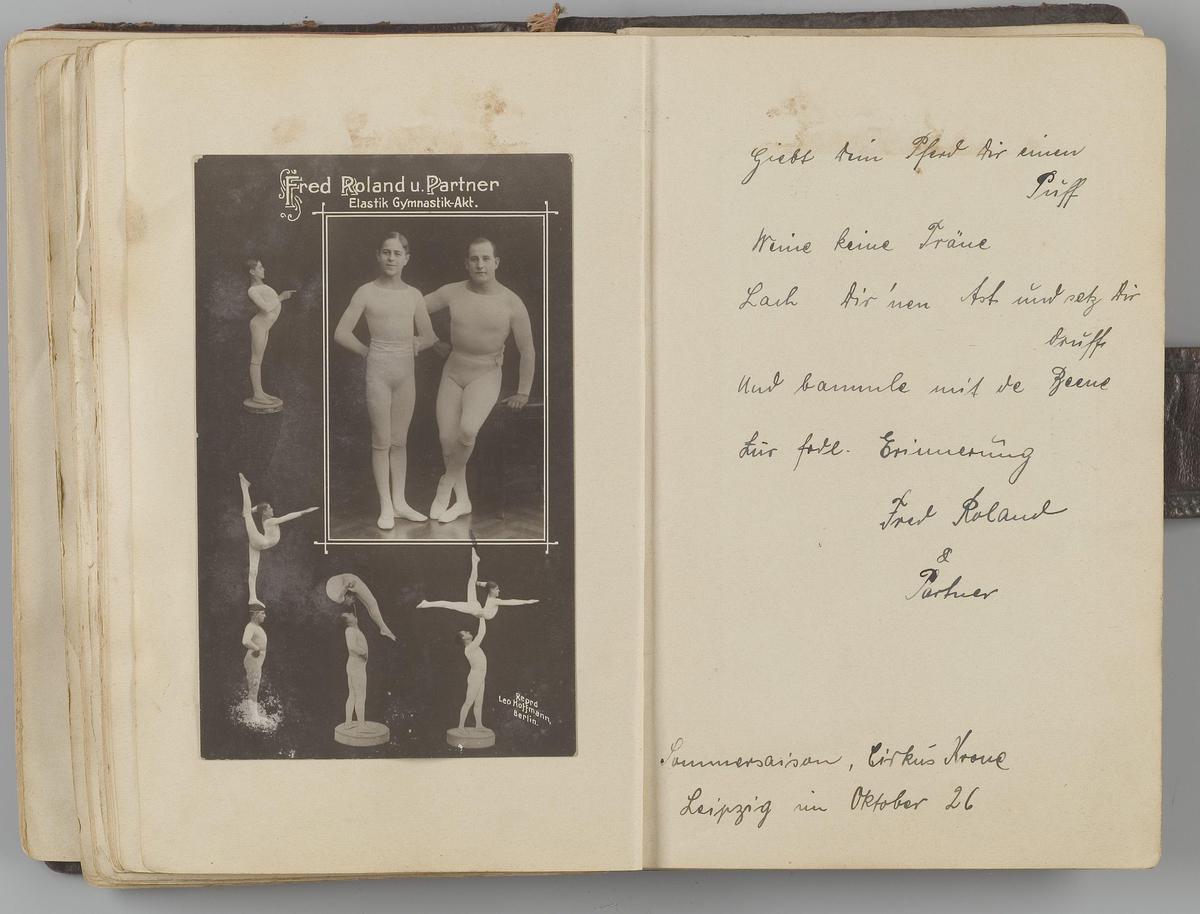 Fred Roland u. Partner
Elastik Gymnastik-Akt.
Reprd
Leo Hoffmann,
Berlin.
Giebt Dein Pferd Dir einen
Puff
Weine keine Träne
Lach Dir 'nen Ast und setz Dir
druff
Und bammle mit de Beene
Zur frdl. Erinnerung
Fred Roland
&
Partner
Sommersaison, Cirkus Krone
Leipzig im Oktober 26